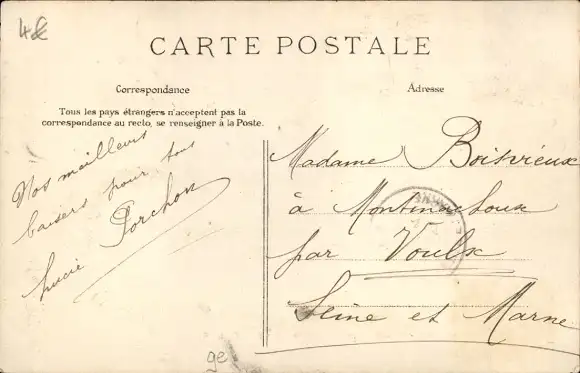 4€
CARTE POSTALE
Correspondance
Adresse
Tous les pays étrangers n'acceptent pas la
correspondance au recto, se renseigner à la Poste.
Nos meilleurs
baisers pour tous
Lucie Porchon
Madame Boisvieux
à
par Voulx
Seine et Marne
ge